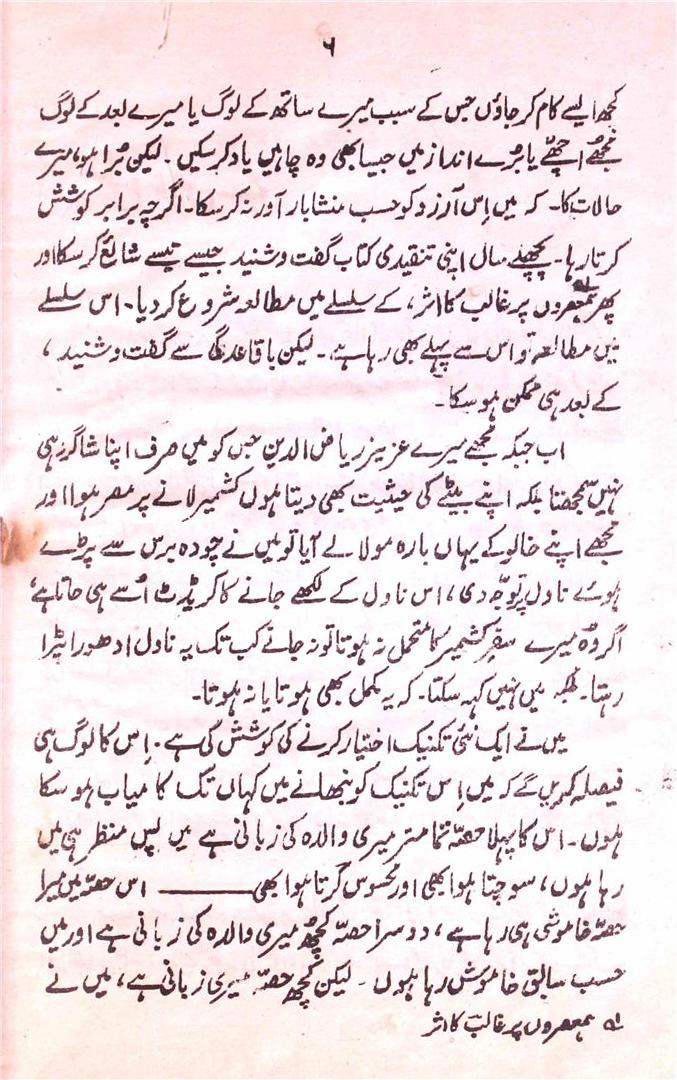 ۶
کچھ ایسے کام کر جاؤں جس کے سبب میرے ساتھ کے لوگ یا میرے بعد کے لوگ
مجھے اچھّے یا بُرے انداز میں جیسا بھی وہ چاہیں یاد کر سکیں ۔ لیکن بُرا ہو، میرے
حالات کا ۔ کہ میں اِس آرزو کو حسب منشا بار آور نہ کر سکا ۔ اگرچہ برابر کوشش
کرتا رہا ۔ پچھلے سال اپنی تنقیدی کتاب گفت و شنید جیسے تیسے شائع کر سکا اور
پھر ہمعصروں پر غالب کا اثر، کے سلسلے میں مطالعہ شروع کر دیا ۔ اس سلسلے
میں مطالعہ تو اس سے پہلے بھی رہا ہے ۔ لیکن باقاعدگی سے گفت و شنید ،
کے بعد ہی ممکن ہو سکا ۔
اب جبکہ مجھے میرے عزیز ریاض الدین جس کو میں صرف اپنا شاگرد ہی
نہیں سمجھتا بلکہ اپنے بیٹے کی حیثیت بھی دیتا ہوں کشمیر لانے پر مصر ہوا اور
مجھے اپنے خالو کے یہاں بارہ مولا لے آیا تو میں نے چودہ برس سے پڑے
ہوئے ناول پر توجّہ دی ، اس ناول کے لکھے جانے کا کریڈٹ اُسے ہی جاتا ہے ،
اگر وہ میرے سفرِ کشمیر کا متحمل نہ ہوتا تو نہ جانے کب تک یہ ناول ادھورا پڑا
رہتا ۔ بلکہ میں نہیں کہہ سکتا ۔ کہ یہ مکمل بھی ہوتا یا نہ ہوتا ۔
میں نے ایک نئی تکنیک اختیار کرنے کی کوشش کی ہے ۔ اِس کا لوگ ہی
فیصلہ کریں گے کہ میں اِس تکنیک کو نبھانے میں کہاں تک کامیاب ہو سکا
ہوں ۔ اس کا پہلا حصّہ تمامتر میری والدہ کی زبانی ہے میں پس منظر ہی میں
رہا ہوں ، سوچتا ہوا بھی اور محسوس کرتا ہوا بھی ——— اس حصّہ میں میرا
حصّہ خاموشی ہی رہا ہے ، دوسرا حصّہ کچھ میری والدہ کی زبانی ہے اور میں
حسب سابق خاموش رہا ہوں ۔ لیکن کچھ حصّہ میری زبانی ہے ، میں نے
؎ ہمعصروں پر غالب کا اثر